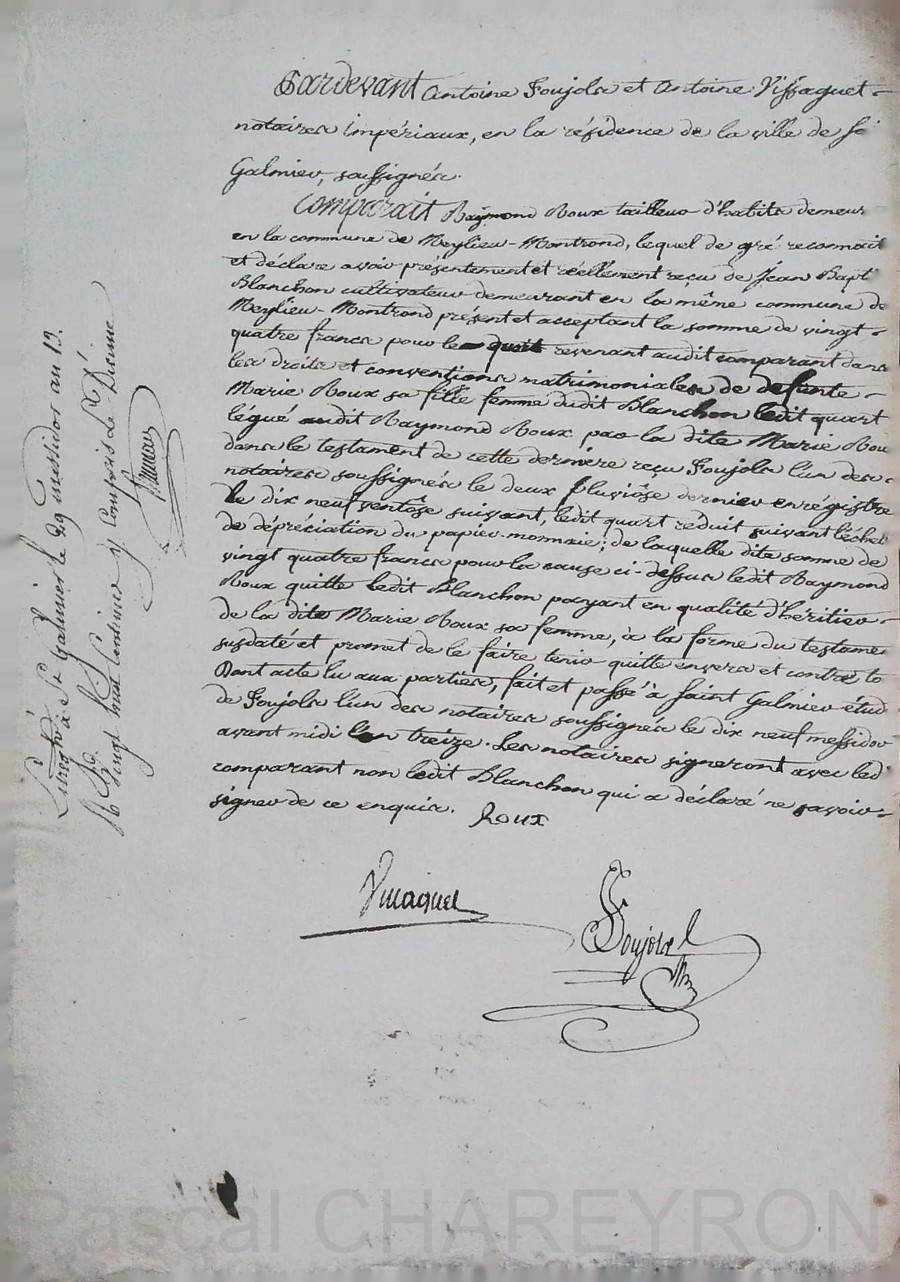 Pardevant Antoine Soujols et Antoine Vissaguet
notaires impériaux, en la résidence de la ville de St
Galmier, soussignés.
Comparait Raymond Roux tailleur d'habits demeur
en la commune de Meylieu-Montrond, lequel de gré reconnait
et déclare avoir présentement et réellement reçu de Jean Bapt
Blanchon cultivateur demeurant en la même commune de
Meylieu-Montrond présent et acceptant la somme de vingt
quatre francs pour le quart revenant audit comparant dans
les droits et conventions matrimoniales de defunte
Marie Roux sa fille femme dudit Blanchon ledit quart
légué audit Raymond Roux par la dite Marie Rou
dans le testament de cette dernière reçu Soujols l'un des
notaires soussignés le deux pluviôse dernier enrégistré
le dix neuf ventôse suivant, ledit quart réduit suivant l'échel
de dépréciation du papier-monnaie; de laquelle dite somme de
vingt quatre francs pour la cause ci-dessus ledit Raymond
Roux quitte ledit Blanchon payant en qualité d'héritier
de la dite Marie Roux sa femme, à la forme du testame
susdaté et promet de le faire tenir quitte envers et contre to
Dont acte lu aux parties, fait et passé à saint Galmier étud
de Soujols l'un des notaires soussignés le dix neuf messidor
avant midi l'an treize. Les notaires signeront avec led
comparant non ledit Blanchon qui a déclaré ne savoir
signer de ce enquis. Roux
Vissaguet
Soujols
Enregtré à St Galmier le 29 messidor an 13.
vingt huit Centimes y Compris le Dixième
Pascal CHAREYRON